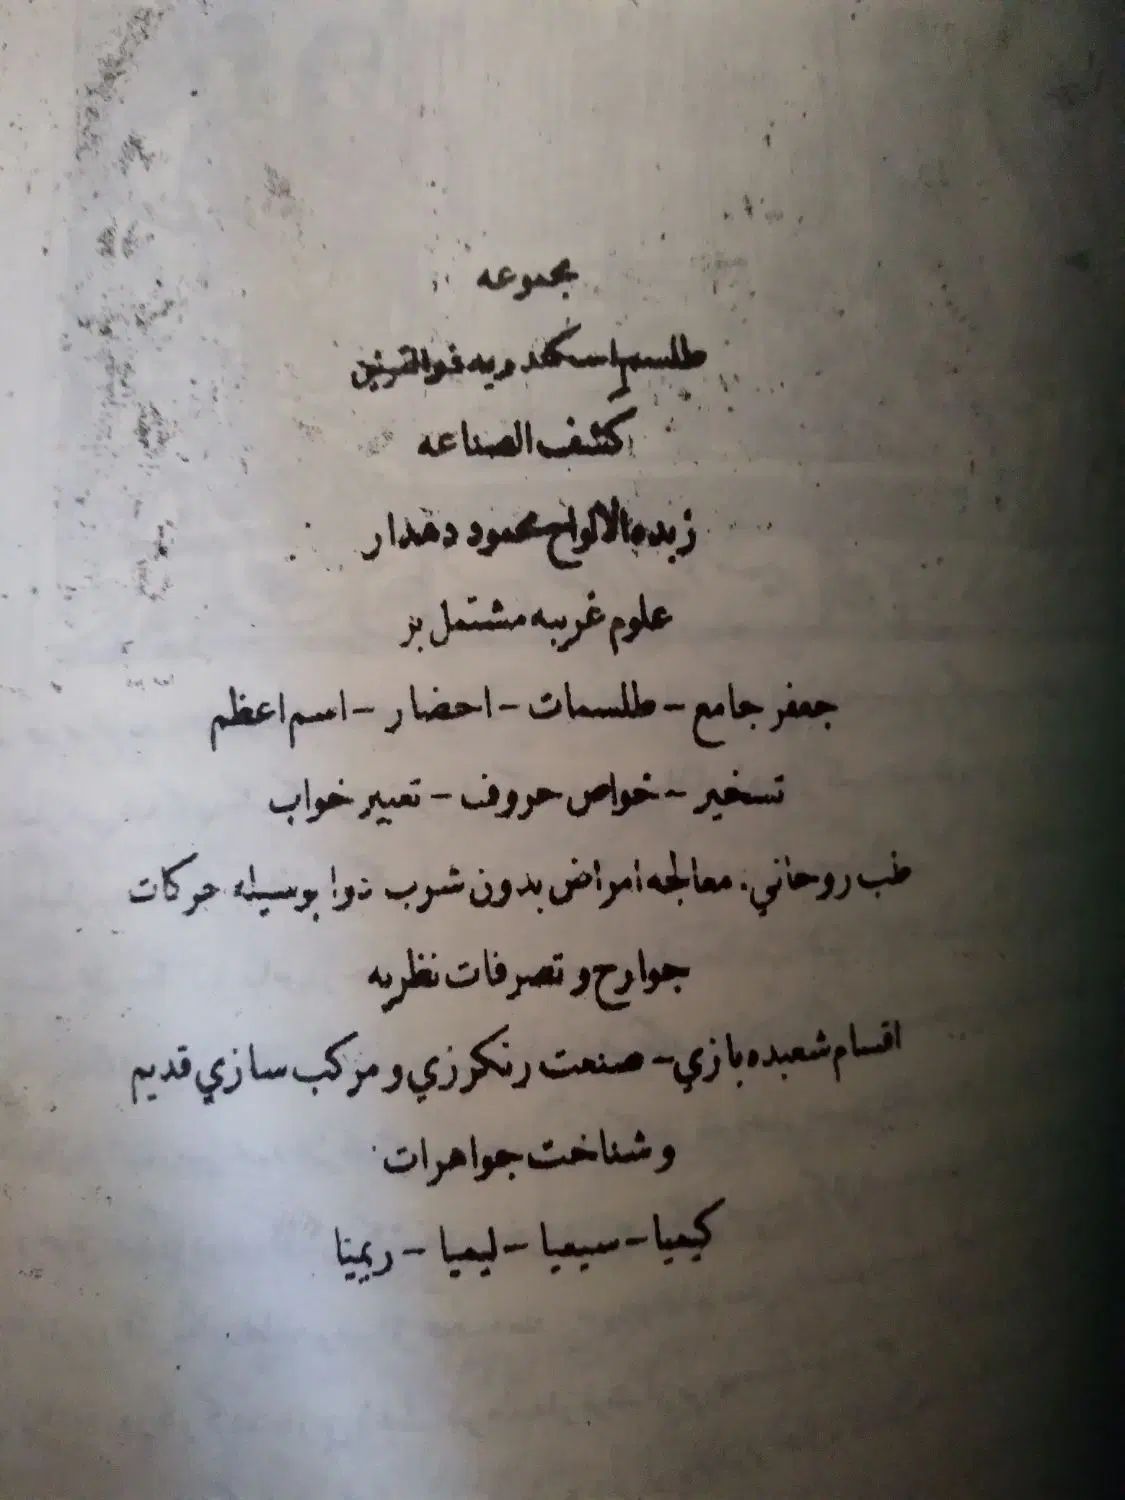 مجموعه
طلسم اسکندریه ذوالقرنین
کشف الصناعه
زبده الالواح محمود دهدار
علوم غریبه مشتمل بر
جعفر جامع - طلسمات - احضار - اسم اعظم
تسخیر - خواص حروف - تعبیر خواب
طب روحاني. معالجه امراض بدون شرب دوا بوسیله حرکات
جوارح و تصرفات نظریه
اقسام شعبده بازي - صنعت رنکرزي و مرکب سازي قدیم
و شناخت جواهرات
کیمیا - سیمیا - لیمیا - ریمیا